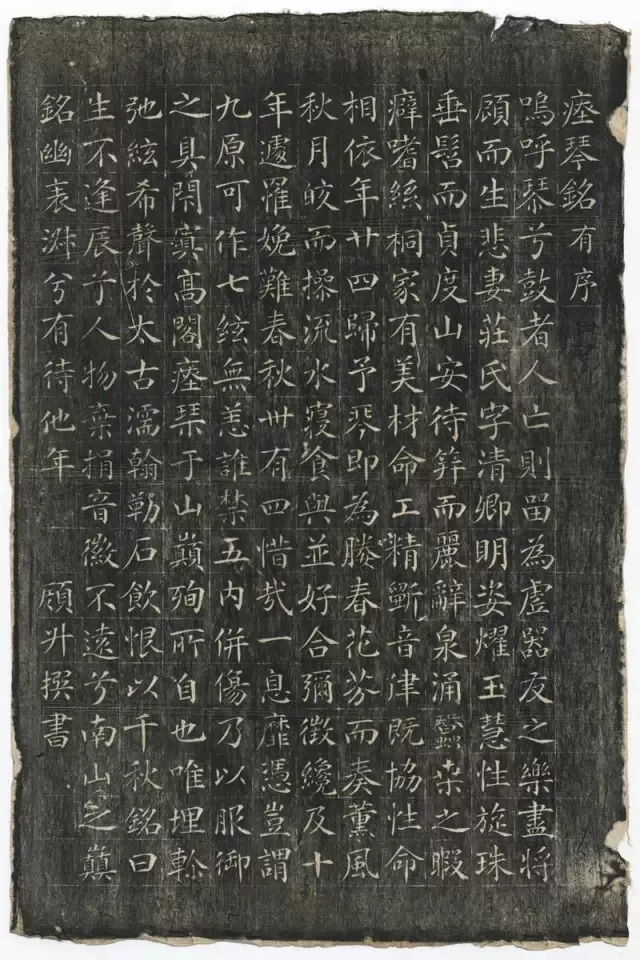 瘞琴銘有序
嗚呼琴兮鼓者人亡則留為虛器友之樂盡將
頋而生悲妻莊氏字清卿明姿燿玉慧性旋珠
垂髫而貞度山安待笄而麗辭泉涌蠶桒之暇
癖嗜絲桐家有美材命工精斵音律既協性命
相依年廿四歸予琴即為媵春花芬而奏薰風
秋月皎而操流水寢食與並好合彌徴纔及十
年遽罹娩難春秋卅有四惜哉一息靡憑豈謂
九原可作七絃無恙誰禁五内併傷乃以服御
之具閇寘高閣瘞琹于山巔殉所自也唯埋軫
弛絃希聲於太古濡翰勒石飲恨以千秋銘曰
生不逢辰兮人物棄捐音徽不遠兮南山之巔
銘幽表渺兮有待他年 頋升撰書